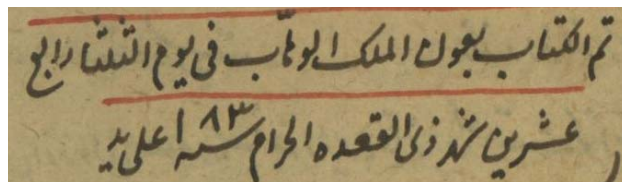 تم الكتاب بعون الملك الوهاب فى يوم الثلثا رابع
عشرين شهر ذى القعده الحرام سنه ١٨٣ على يد